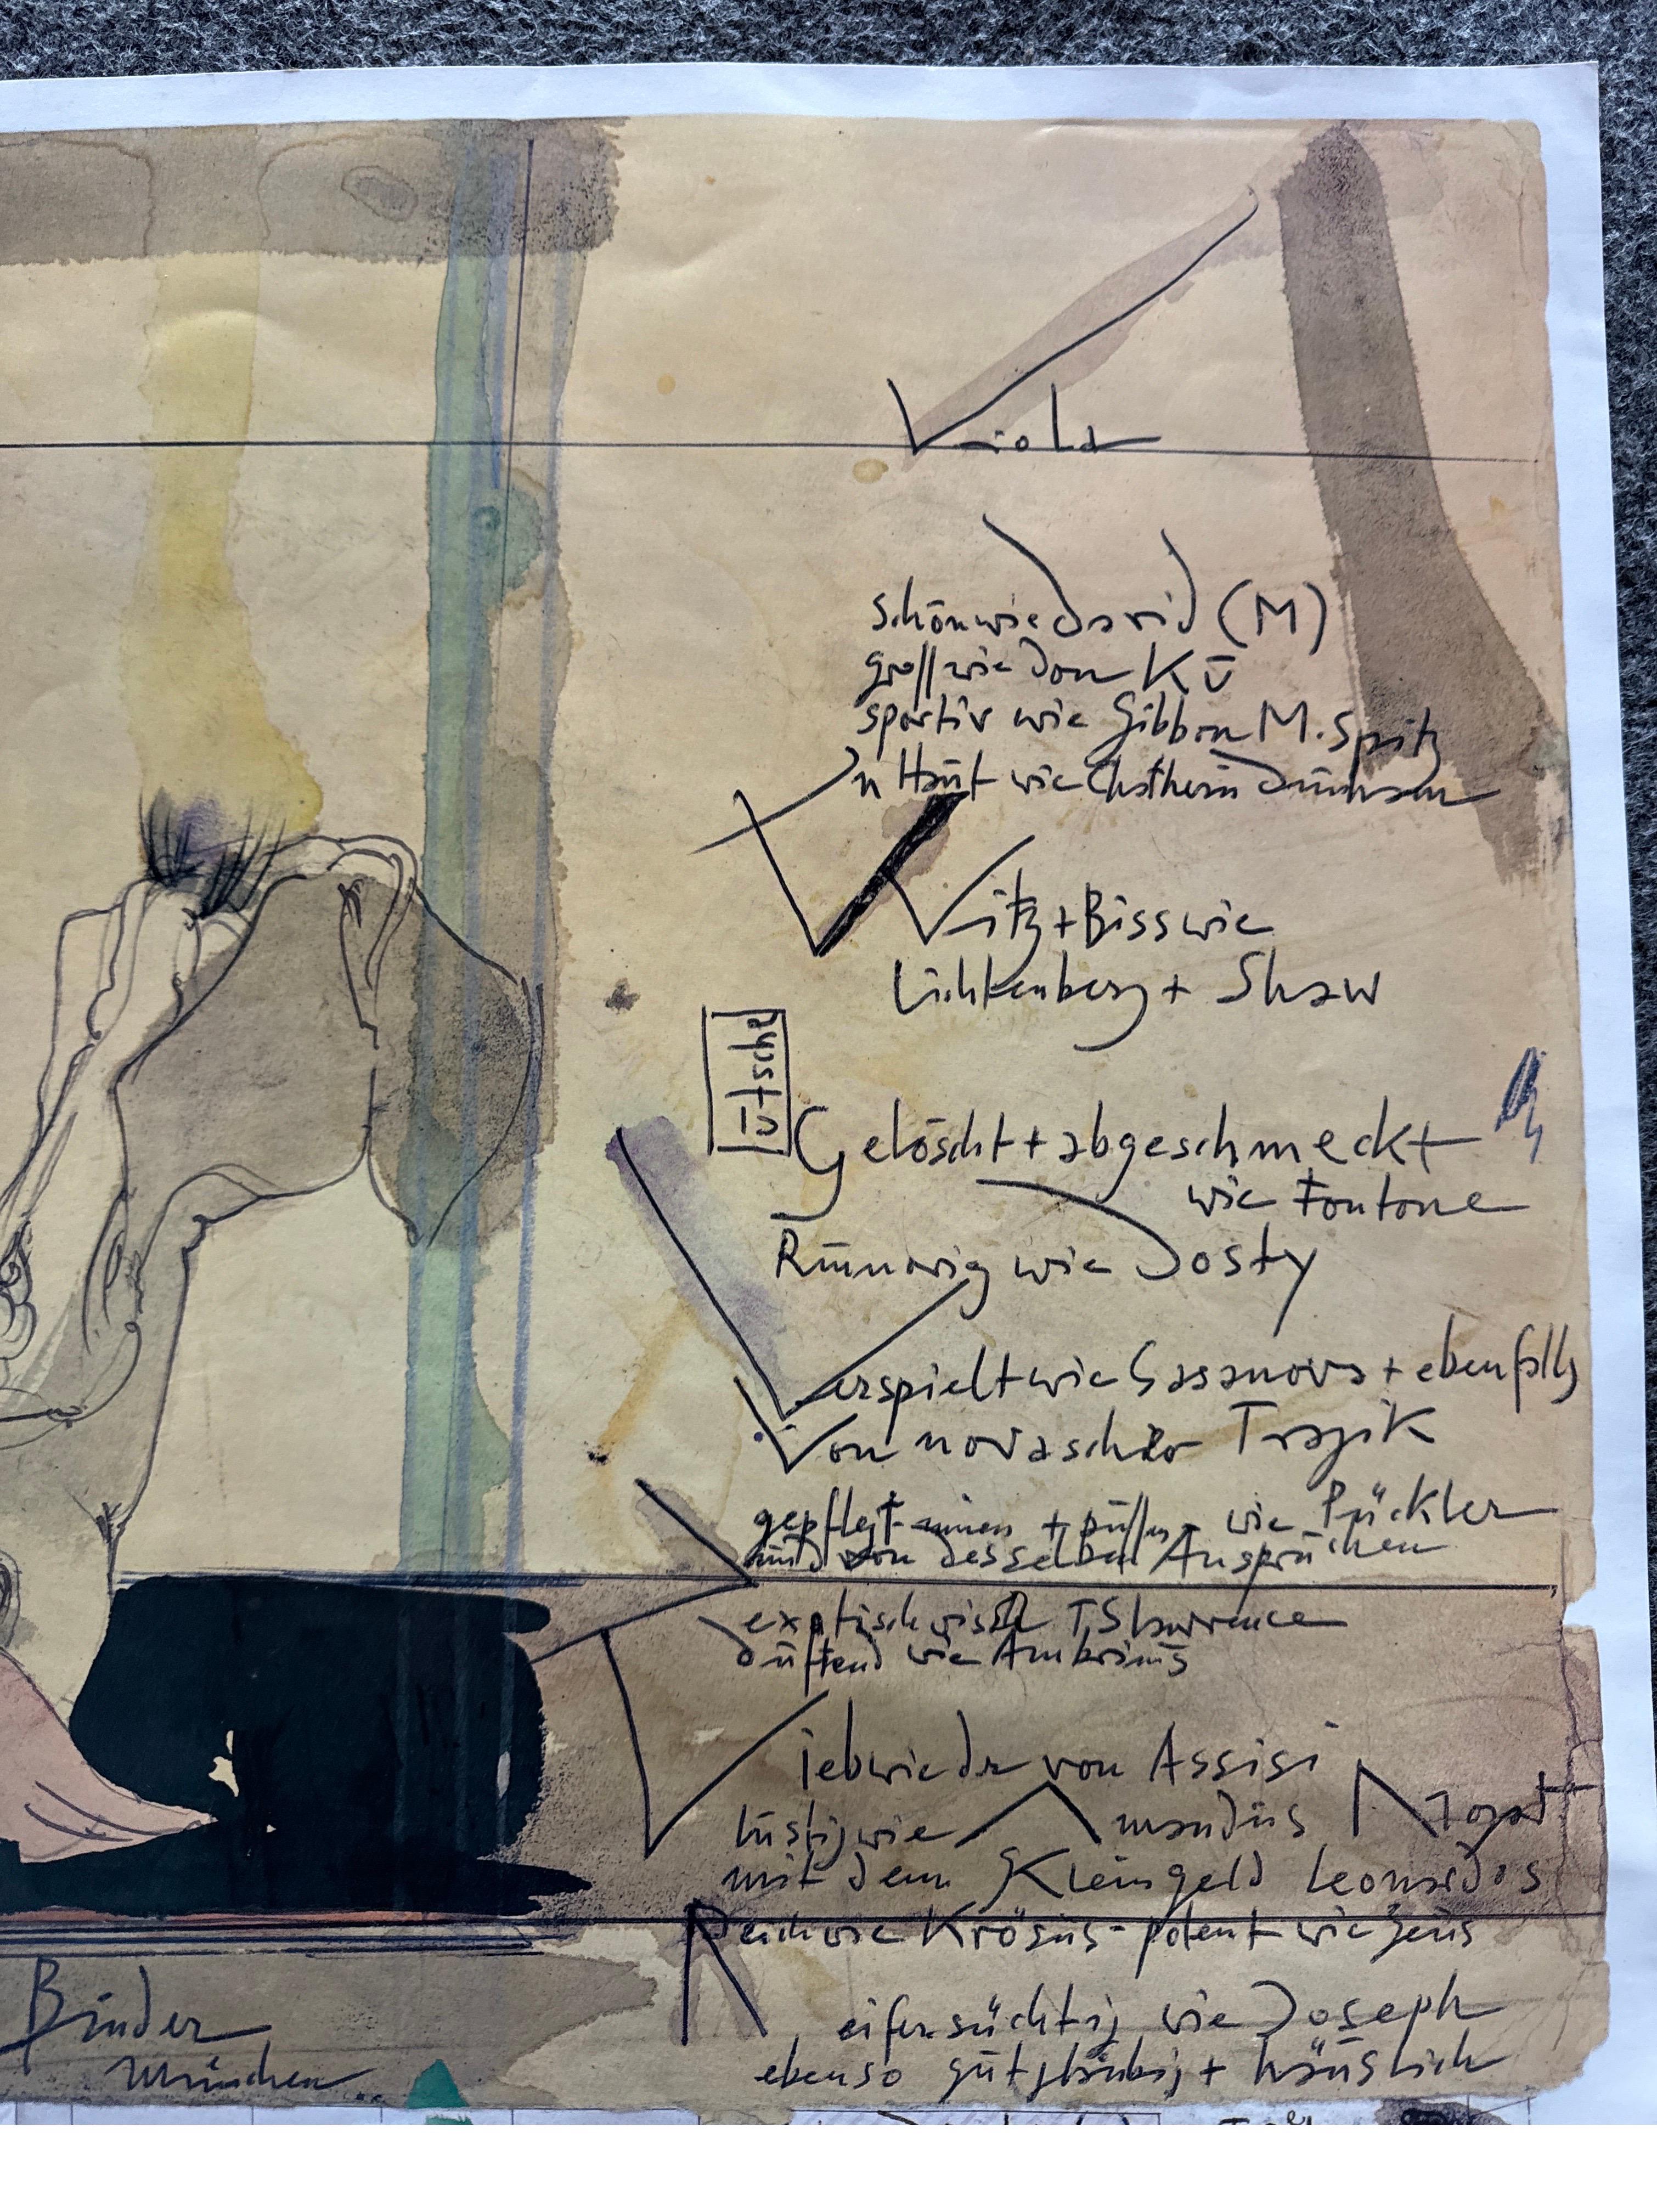 Viola
schön wie David (M)
groß wie Don Kū
sportiv wie Gibbon M. Spitz
'n Haūt wie Chatherin
Witz + Biss wie
Lichtenberg + Shaw
Gelöscht + abgeschmeckt
wie Fontane
wie Dosty
Verspielt wie Casanova + ebenfalls
von novascher Tragik
gepflegt innen + aūßen wie Pückler
ūnd von desselben Ansprüchen
exotisch wie TS Lawrence
dūftend wie Ambrians
lieb wie der von Assisi
lūstig wie Amandūs
mit dem Kleingeld Leonardos
Reich wie Krösūs - potent wie Zeūs
eifersüchtig wie Joseph
ebenso gūtglāubig + häūslich
Binder
München..